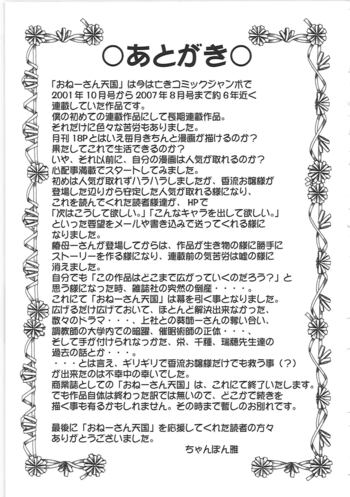 ○あとがき○
「おねーさん天国」は今は亡きコミックジャンボで
2001年10月号から2007年8月号まで約6年近く
連載していた作品です。
僕の初めての連載作品にして長期連載作品。
それだけに色々な苦労もありました。
月刊18Pとはいえ毎月きちんと漫画が描けるのか?
果たしてこれで生活できるのか?
いや、それ以前に、自分の漫画は人気が取れるのか?
心配事満載でスタートしてみました。
初めは人気が取れずハラハラしましたが、香流お嬢様が
登場した辺りから安定した人気が取れる様になり、
これを読んでくれた読者様達が、HPで
「次はこうして欲しい。」「こんなキャラを出して欲しい。」
といった要望をメールや書き込みで送ってくれる様に
なりました。
椿母ーさんが登場してからは、作品が生き物の様に勝手に
ストーリーを作る様になり、連載前の気苦労は嘘の様に
消えました。
自分でも「この作品はどこまで広がっていくのだろう?」と
思う様になった時、雑誌社の突然の倒産・・・・。
これにて「おねーさん天国」は幕を引く事となりました。
広げるだけ広げておいて、ほとんど解決出来なかった、
数々のドラマ・・・、上社との葵師一さんの奪い合い、
調教師の大学内での暗躍、催眠術師の正体・・・、
そして手が付けられなかった、栄、千種、瑞穂先生達の
過去の話とか・・・。
・・・とは言え、ギリギリで香流お嬢様だけでも救う事(?)
が出来たのは不幸中の幸いでした。
商業誌としての「おねーさん天国」は、これにて終了いたします。
でも作品自体は終わった訳では無いので、どこかで続きを
描く事も有るかもしれません。その時まで暫しのお別れです。
最後に「おねーさん天国」を応援してくれた読者の方々
ありがとうございました。
ちゃんぽん雅